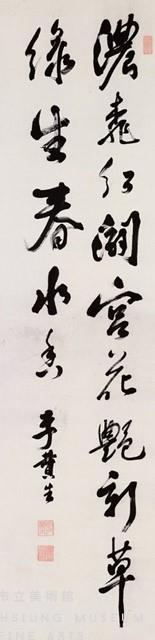 濃紅潤宮花艷新草
綠生春水香
市立美術館
HSIUNG MUSEUM
FINE ARTS